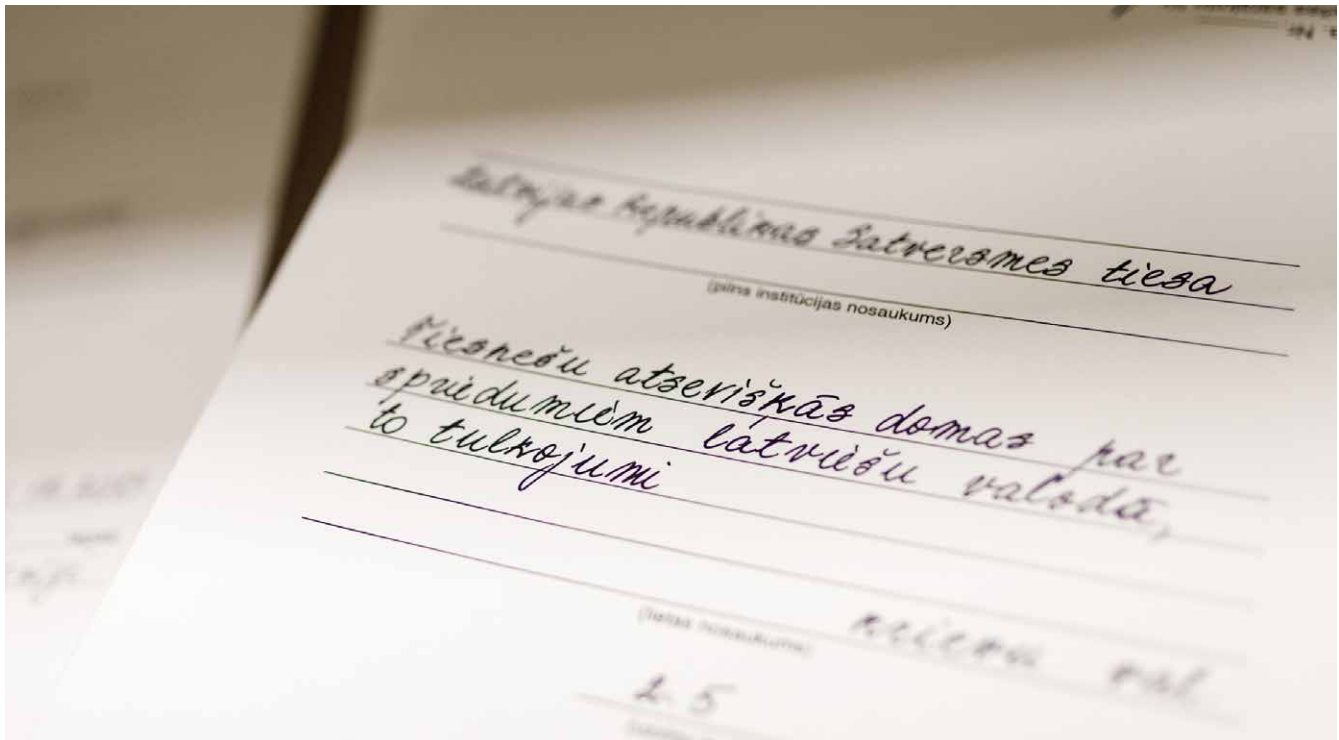 Nr
Latvijas Republikas Satversmes tiesa
(pilns institūcijas nosaukums)
Tiesnešu atsevišķās domas par
spriedumiem latviešu valodā,
to tulkojumi
krievu val
(lietas nosaukums)
2.5